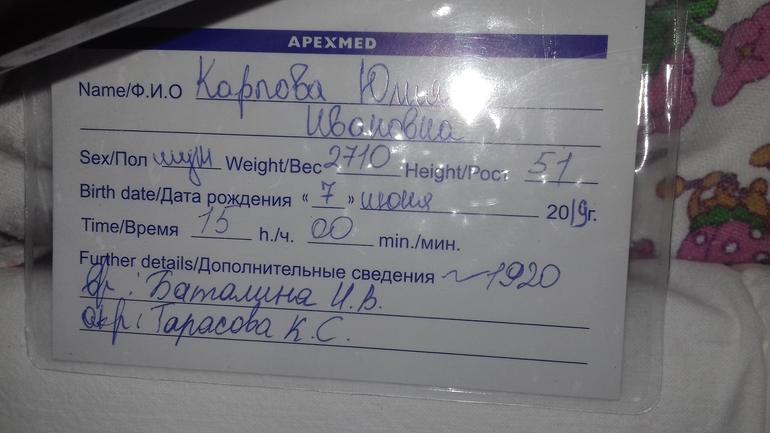 APEXMED
Name/Ф.И.О Карпова Юлия
Ивановна
Sex/Пол муж Weight/Вес 2710 Height/Рост 51
Birth date/Дата рождения « 7 » июня 2019г.
Time/Время 15 h./ч. 00 min./мин.
Further details/Дополнительные сведения ~1920
Вр.: Баталина И.В.
акр: Тарасова К.С.